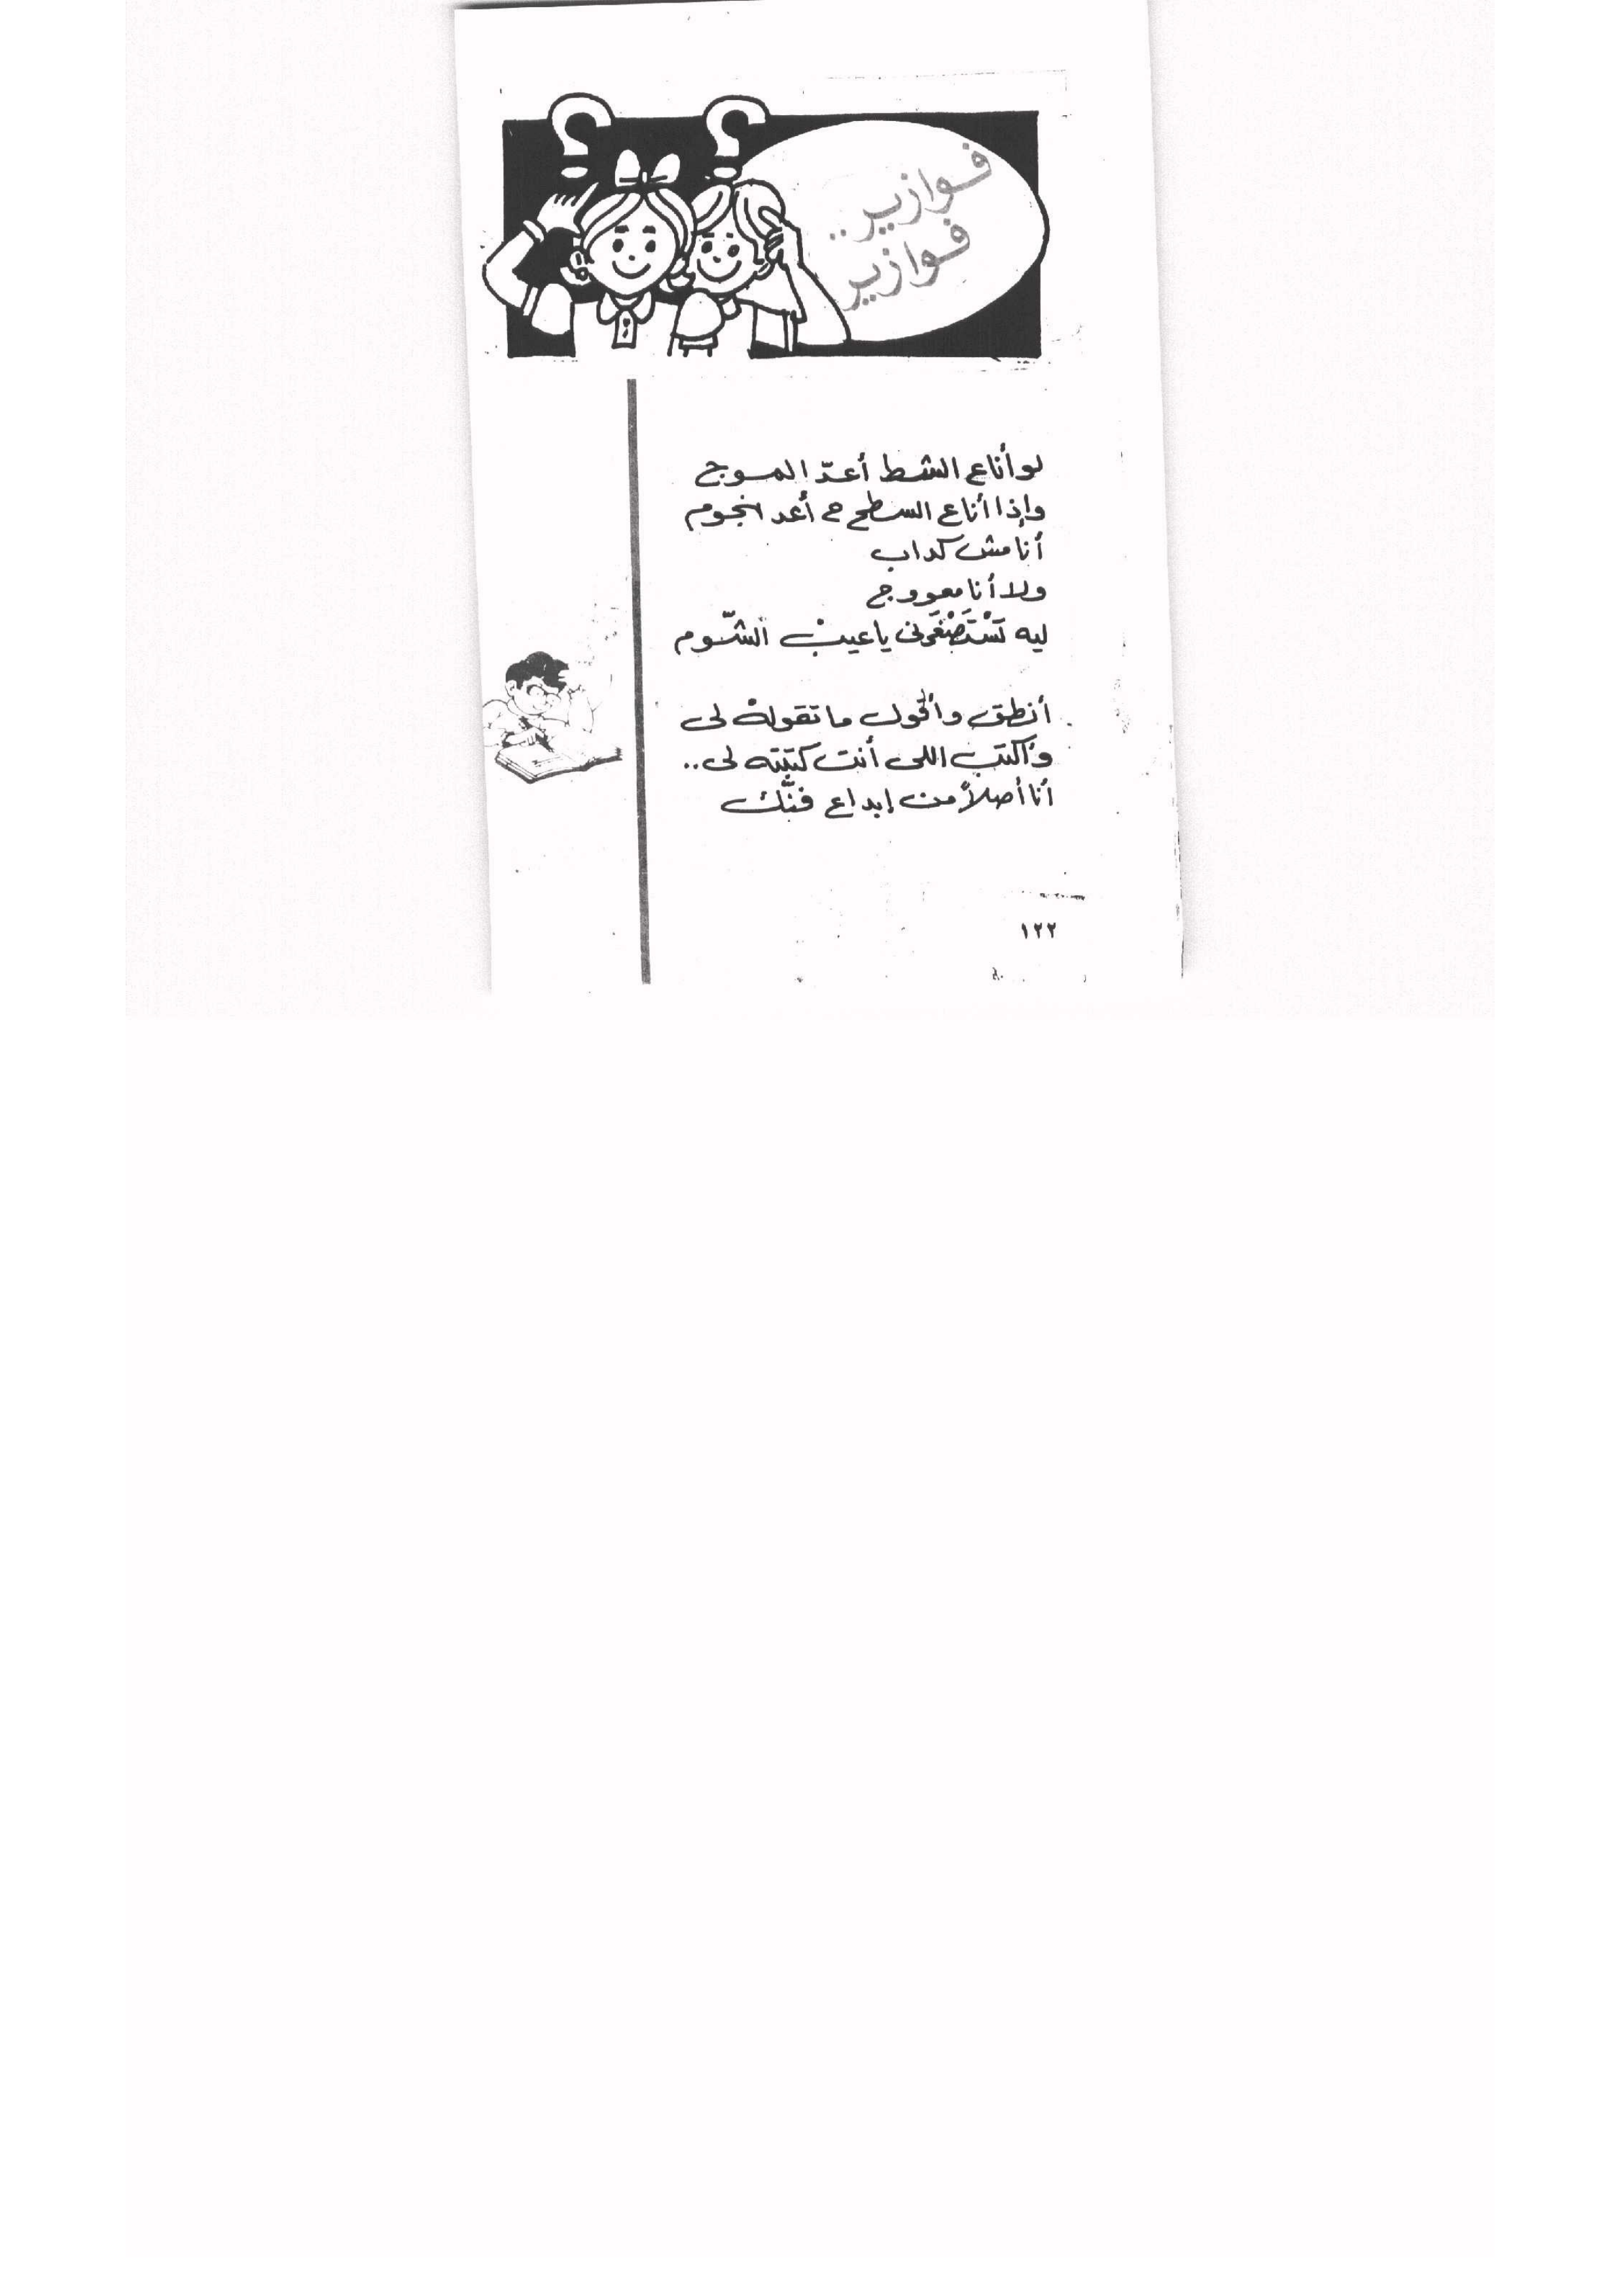 فوازير..
فوازير
لو أنا ع الشط أعدّ الموج
وإذا أنا ع السطح ح أعد انجوم
أنا مش كداب
ولا أنا معووج
ليه تَسْتَصْغَرنى يا عينْ الشّوم
أنطق وأقول ما تقولهْ لى
وأكتب اللى أنت كتبته لى..
أنا أصلاً من إبداع فنَّك
١٢٢